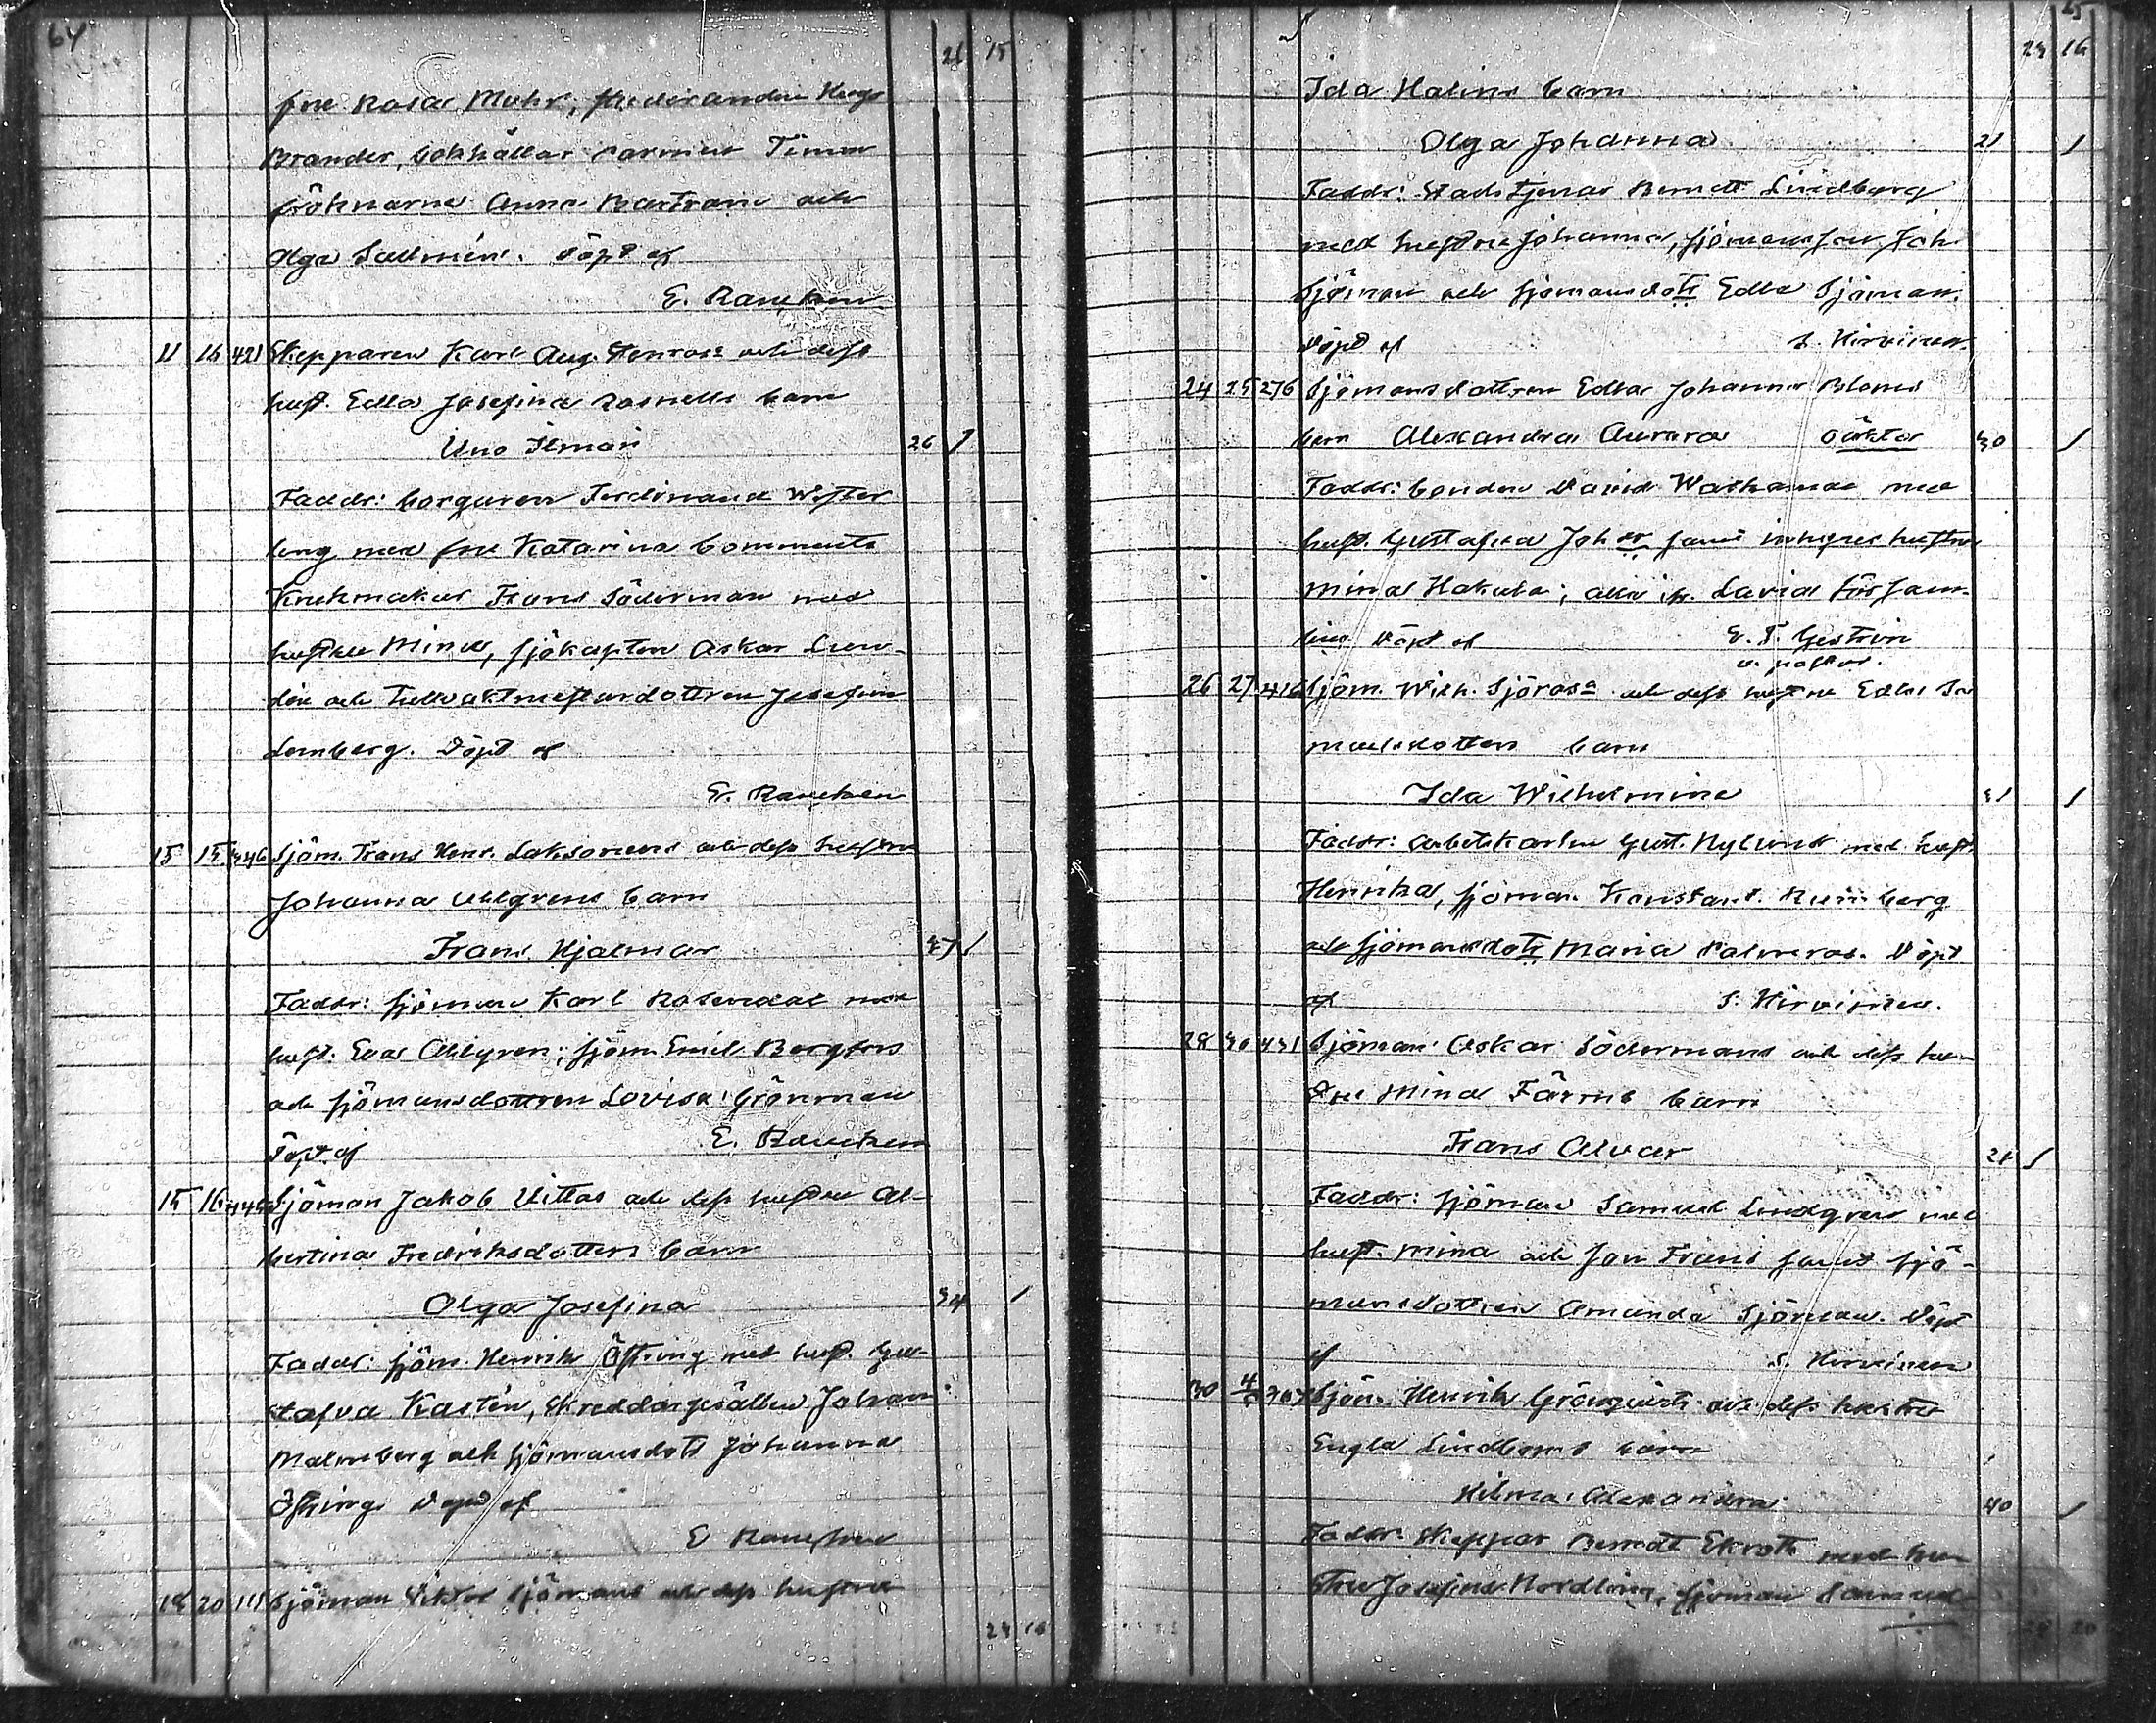 64
26 15
frw Rosa Mohr, studeranden Hugo
Brander, bokhållar Hjalmar Timm
fröknarna Anna Bartram och
Olga Sallmén. Döpt af
E. Rancken
11 16 421 Skepparen Karl Aug. Stenros och dess
hust. Edla Josefina Rosnells barn
Uno Ilmari 26 1
Faddr: borgaren Ferdinand Wester
lung med fru Katarina
Krukmakar Frans Söderman med
hustru Mina, sjökapten Oskar Lun-
din och tullvaktmestardottren Josefin
Lemberg. Döpt af
E. Rancken
15 15 446 Sjöm. Frans Henr. Saksonens och dess hustru
Johanna Ahlgrens barn
Frans Hjalmar 37 1
Faddr: sjöman Karl Rosendal med
hust. Eva Ahlgren, sjöm. Emil Bergfors
och sjömansdottren Lovisa Grönman
Döpt af E. Rancken
15 16 445 Sjöman Jakob Vittas och dess hustru Al-
bertina Fredriksdotters barn
Olga Josefina 34 1
Faddr: sjöm. Henrik Östring med hust. Gus-
tafva Kastén, Skreddargesällen Johan
Malmberg och sjömansdotr Johanna
Östring. Döpt af
E. Rancken
18 20 111 Sjöman Viktor Sjömans och dess hustru
24 16
65
24 16
Ida Malins barn
Olga Johanna 21 1
Faddr: Stadstjenar Berndt Lindberg
med hustru Johanna, sjömans Joh.
Sjöman och sjömansdotr Edla Sjöman.
Döpt af S. Hirvinen.
24 25 276 Sjömansdottren Edla Johanna Bloms
barn Alexandra Aurora oäkta 30 1
Faddr: bonden David med
hust. Gustafva Joh dr samt inhyses hustru
Mina Hakula; alla i Lavia försam-
ling Döpt af E. F. Gestrin
v. pastor.
26 27 416 Sjöm. Wilh. Sjöros och dess hustru Edla Sa
muelsdotters barn
Ida Wilhelmina 31 1
Faddr: Arbetskarlen Gust. Nylund med hust.
Henrika, sjöman Konstant.
och sjömansdotr Maria Palmros. Döpt
af S. Hirvinen.
28 30 431 Sjöman Oskar Södermans och dess hu-
stru Mina Färms barn
Frans Alvar 21 1
Faddr: sjöman Samuel Lindgren med
hust. Mina och son Frans samt sjö-
mansdottren Amanda Sjöman. Döpt
af S. Hirvinen
30 4/6 Sjöm. Henrik Grönqvists och dess hustru
Engla Lindboms barn
Hilma Alexandra 40 1
Faddr: Skeppar Berndt Ekroth med hu-
stru Josefina Nordling, sjöman Samuel